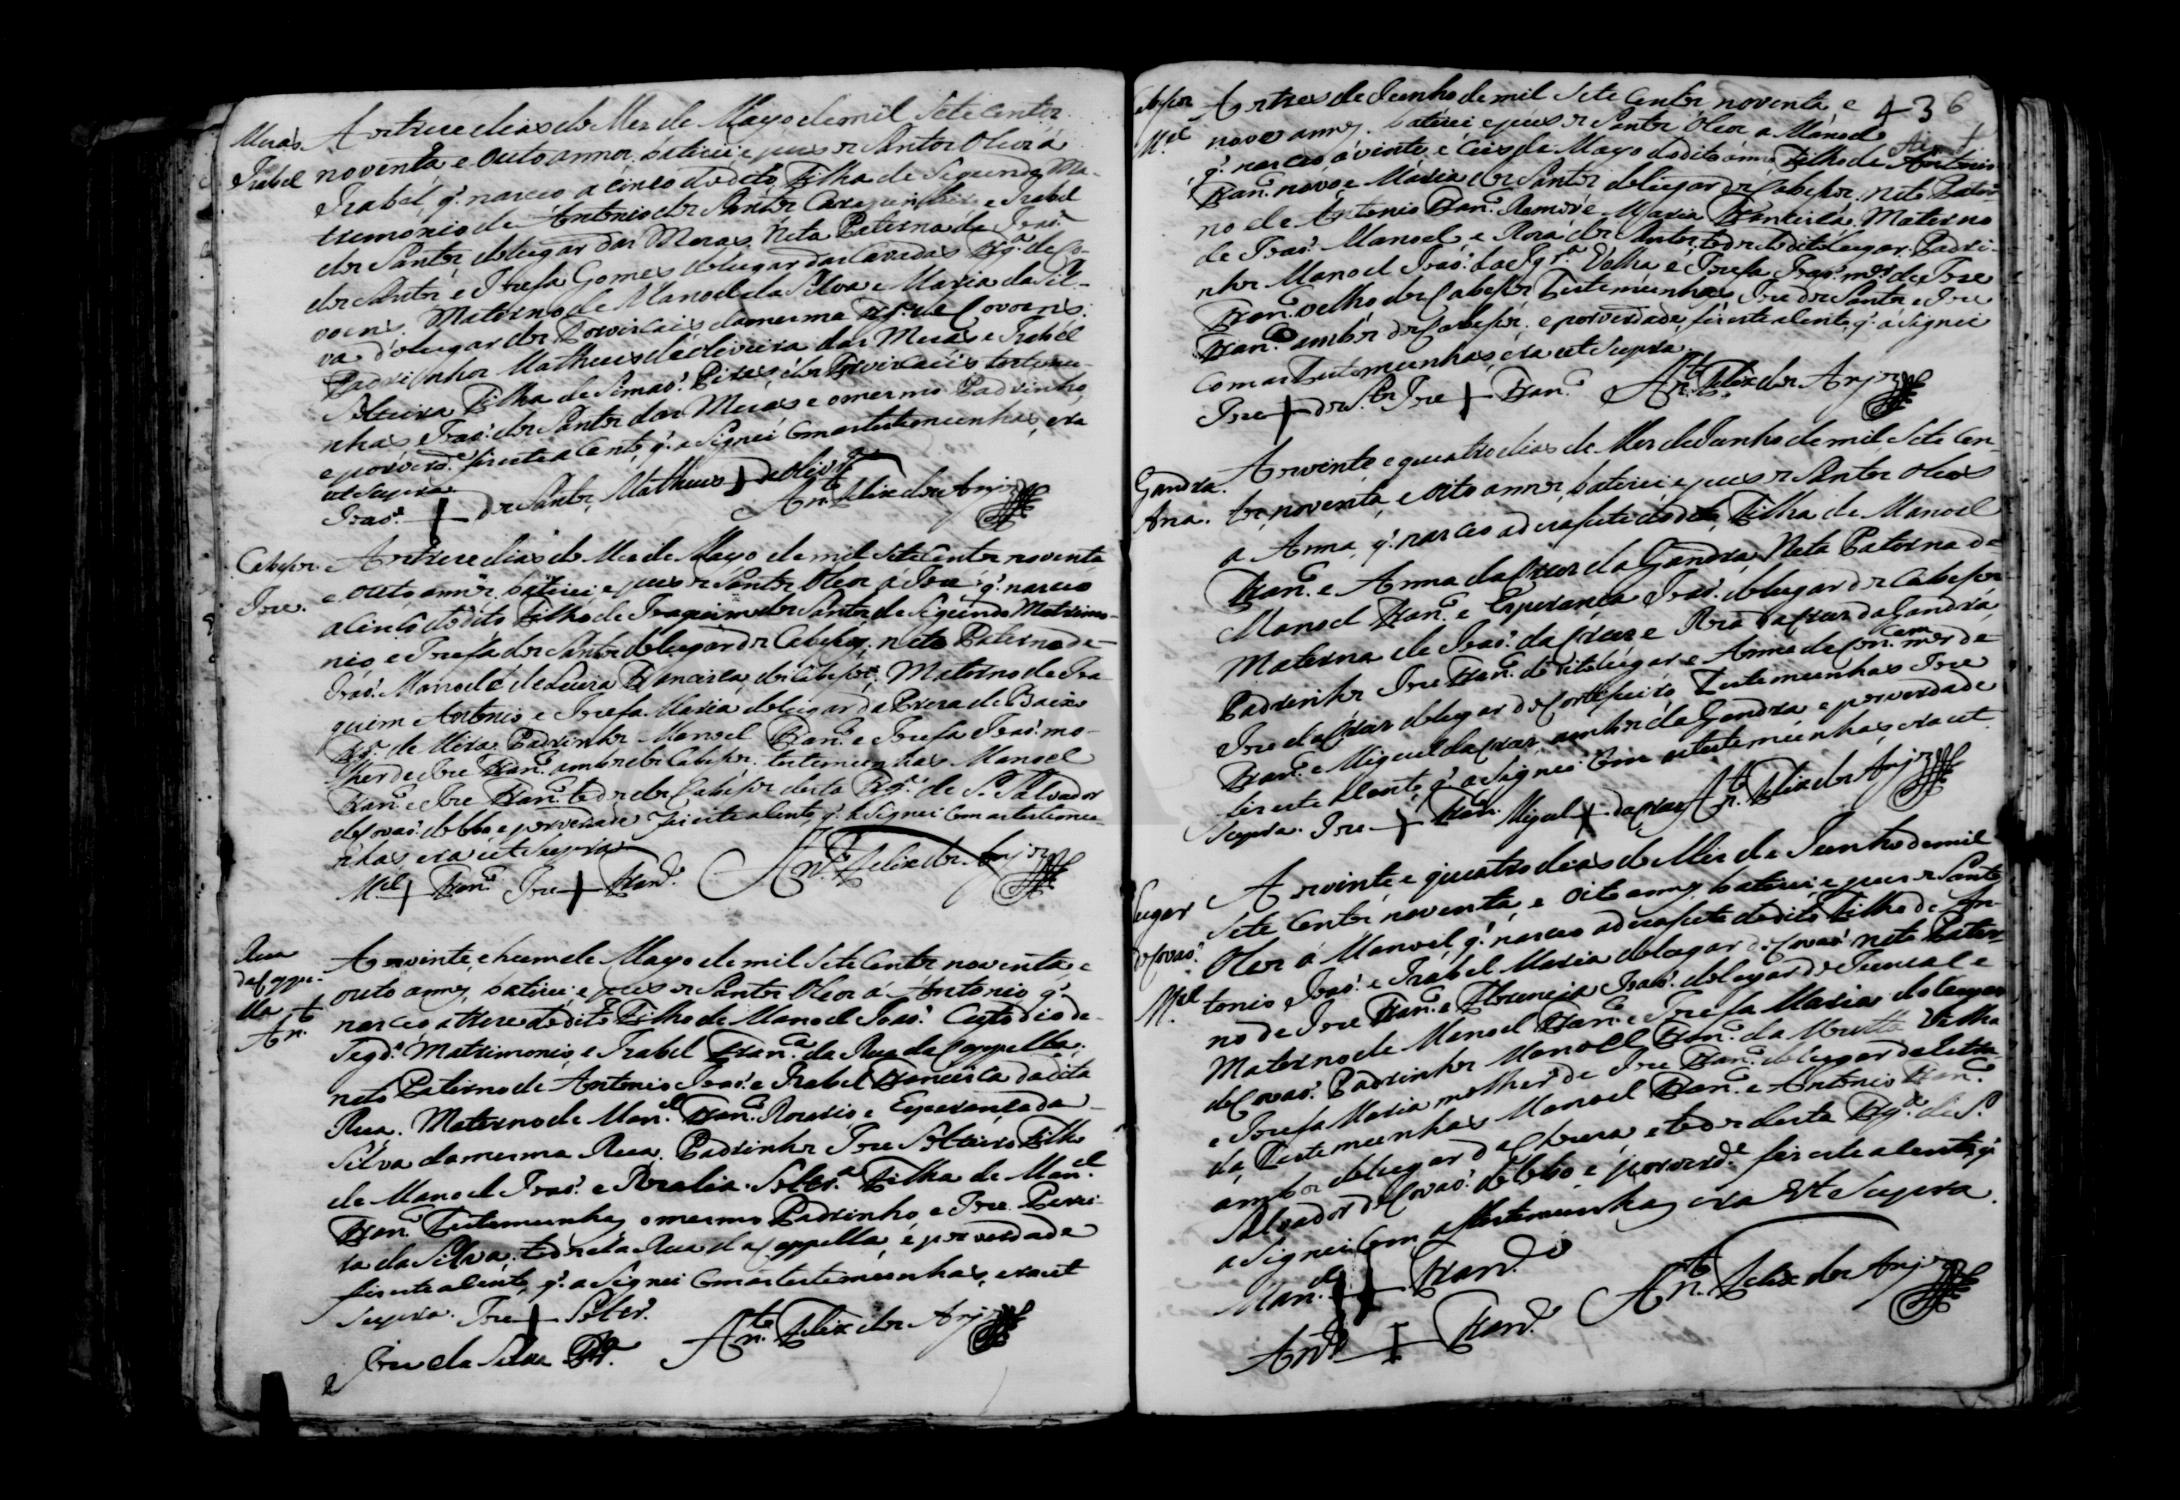 Meras.
Izabel
Aos treze dias do Mes de Mayo de mil Sete Centos
noventa, e outo annos, baticei e puz os Santos Oleos á
Izabel q̃ nasceo a cinco do dito, Filha de Segundo Ma-
tremonio de Antonio dos Santos e Izabel
dos Santos, do lugar das Meras, Neta Paterna de Joaõ
dos Santos e Jozefa Gomes do lugar das Cavadas Frg.ª de Co-
voens. Materna de Manoel da Silva e Maria da Sil-
va do lugar dos da mesma Frg.ª de Covoens.
Padrinhos Matheus de oliveira das Meras e Izabel
Solteira Filha de Simaõ Pires, dos testemu-
nhas Joaõ dos Santos das Meras e o mesmo Padrinho,
e por verd.e fiz este acento, q̃ asignei com as testemunhas, era
ut Supra.
Joaõ + dos Santos, Matheus + de olivr.ª
An.to Felix dos Anjos
Cabesos
Joze.
Aos treze dias do Mes de Mayo de mil Sete Centos noventa
e outo annos, baticei e puz os Santos Oleos a Joze q̃ nasceo
a cinco do dito Filho de Joaquim dos Santos de Segundo Matrimo-
nio, e Jozefa dos Santos do lugar dos Cabesos, neto Paterno de
Joaõ Manoel e de Luiza Francisca, dos Cabesos, Materno de Joa-
quim Antonio e Jozefa Maria do lugar da Preza de Baixo
Frg.ª de Mira. Padrinhos Manoel Fran.co e Jozefa Joaõ mo-
lher de Joze Fran.co ambos dos Cabesos. testemunhas Manoel
Fran.co e Joze Fran.co todos dos Cabesos desta Frg.ª de S. Salvador
de Covaõ do lobo e por verdade fiz este acento, q̃ asignei com as testemu-
nhas era ut Supra
M.el + Fran.co Joze + Fran.co An.to Felix dos Anjos
Rua
da Cappe-
lla
An.to
Aos vinte, e hum de Mayo de mil Sete Centos noventa e
outo annos, baticei e puz os Santos Oleos á Antonio q̃
nasceo a treze do dito Filho de Manoel Joaõ Custodio de
Segd.º Matrimonio, e Izabel Fran.ca da Rua da Cappella;
neto Paterno de Antonio Joaõ e Izabel Francisca da dita
Rua. Materno de Man.el Fran.co Rozario, e Esperança da
Silva da mesma Rua. Padrinhos Joze Solteiro Filho
de Manoel Joaõ e Rozalia Solt.ra Filha de Man.el
Fran.co Testemunhas o mesmo Padrinho e Joze Perei-
ra da Silva, todos da Rua da Cappella, e por verdade
fiz este acento, q̃ asignei com as testemunhas, era ut
Supra. Joze + Solter.º
Joze da Silva Pr.ª An.to Felix dos Anjos
436
Cabesos
M.el
Aos tres de Junho de mil Sete Centos noventa, e
nove annos, baticei e puz os Santos Oleos a Manoel
q̃ nasceo á vinte, e seis de Mayo do dito anno Filho de Antonio
Fran.co novo e Maria dos Santos do lugar dos Cabesos. neto Pater-
no de Antonio Fran.co e Maria Francisca. Materno
de Joaõ Manoel e Roza dos Santos, todos do dito lugar. Padri-
nhos Manoel Joaõ da Egr.ª Velha e Jozefa Joaõ m.er de Joze
Fran.co velho dos Cabesos Testemunhas Joze dos Santos e Joze
Fran.co ambos dos Cabesos. e por verdade, fiz este acento, q̃ asignei
com as Testemunhas, era ut Supra.
Joze + dos S.tos Joze + Fran.co An.to Felix dos Anjos
Gandra.
Ana.
Aos vinte, e quatro dias do Mes de Junho de mil, Sete Cen-
tos, noventa, e oito annos, baticei e puz os Santos Oleos
a Anna, q̃ nasceo a dezasete do dito, Filha de Manoel
Fran.co e Anna da Cruz da Gandra, Neta Paterna de
Manoel Fran.co e Esperança Joaõ do lugar dos Cabesos
Materna de Joaõ da Cruz e Roza da Cruz da Gandra,
Padrinhos Joze Fran.co do dito lugar e Anna da Con.cam m.er de
Joze da Cruz do lugar do Cortiseiro, Testemunhas Joze
Fran.co e Miguel da Cruz ambos da Gandra e por verdade
fiz este Acento, q̃ asignei com as testemunhas, era ut
Supra. Joze + Fran.co Migel + da Cruz An.to Felix dos Anjos
Lugar
de Covaõ
M.el
Aos vinte, e quatro dias do Mes de Junho de mil
Sete Centos noventa, e oito annos, baticei, e puz os Santos
Oleos á Manoel, q̃ nasceo a dezasete do dito, Filho de An-
tonio Joaõ e Izabel Maria do lugar de Covaõ neto Pater-
no de Joze Fran.co e Florencia Joaõ do lugar do Juncal e
Materno de Manoel Fran.co e Jozefa Maria do lugar
de Covaõ. Padrinhos Manoel Fran.co da Moutta Velha
e Jozefa Maria molher de Joze Fran.co do lugar
da Testemunhas Manoel Fran.co e Antonio Fran.co
ambos do lugar da e todos desta Frg.ª de S.
Salvador de Covaõ do lobo, e por verd.e fiz este acento, q̃
asignei com as testemunhas era Ut Supra.
Man.el + Fran.co
An.to + Fran.co An.to Felix dos Anjos